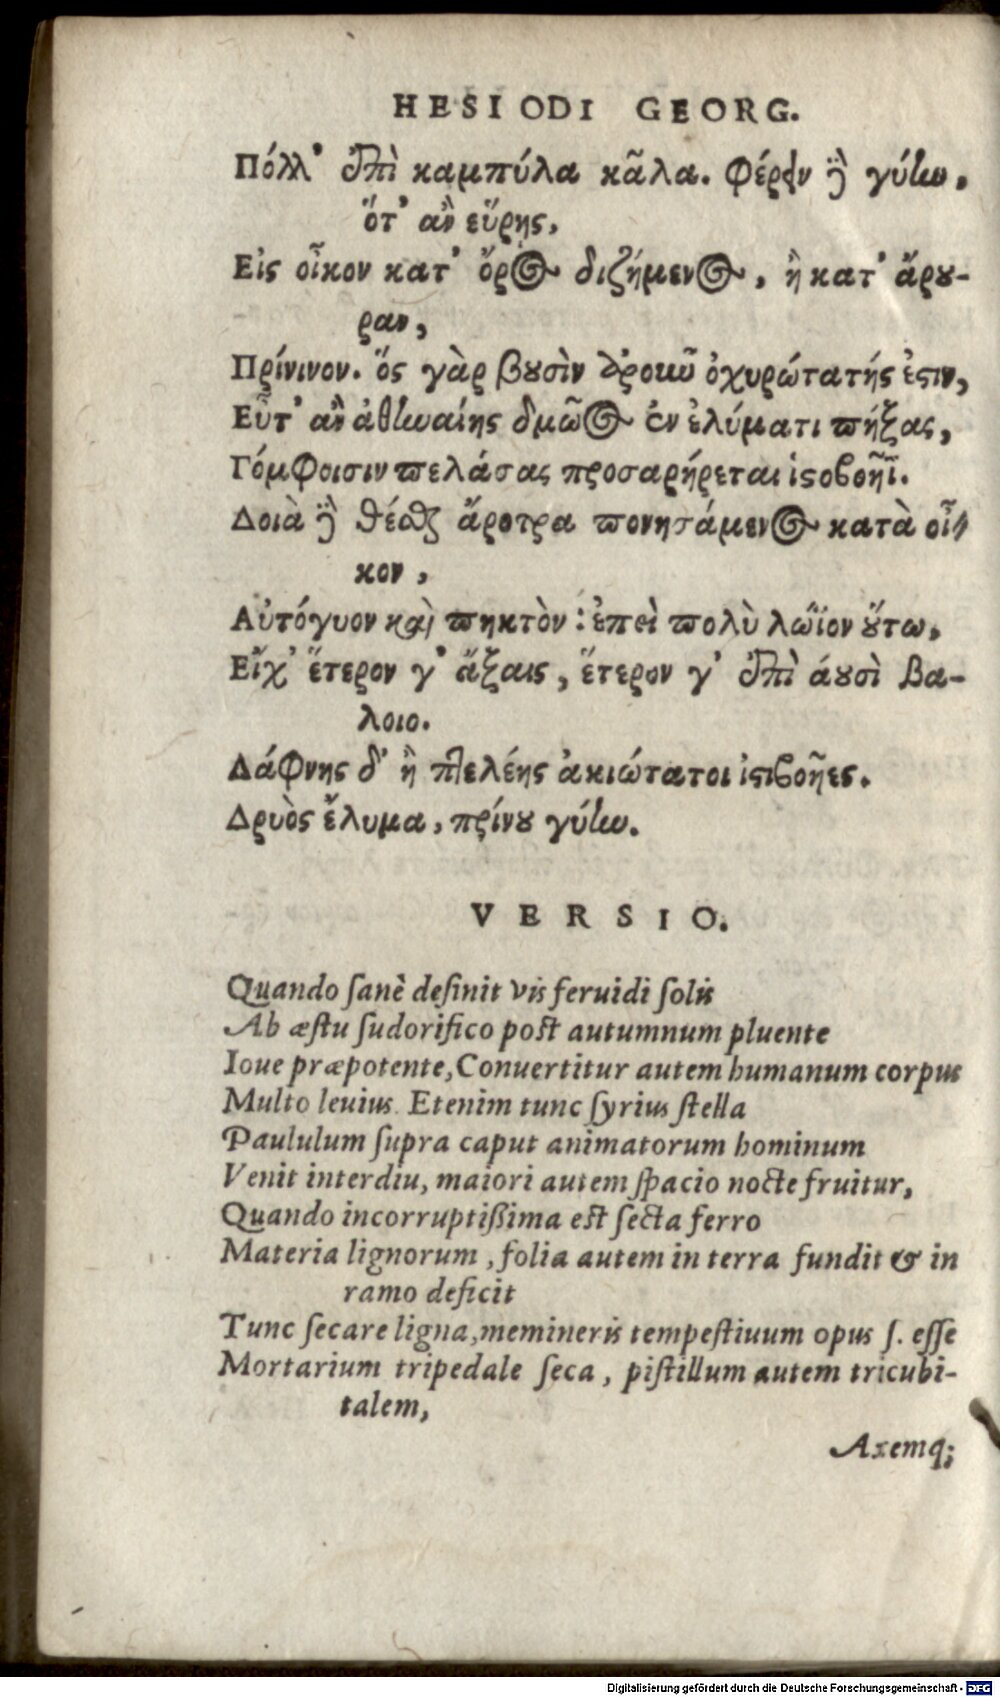 HESIODI GEORG.
Πόλλ' ἐπὶ καμπύλα κᾶλα. φέρειν δὲ γύην,
ὅτ' ἂν εὕρης,
Εἰς οἶκον κατ' ὄρος διζήμενος, ἢ κατ' ἄρου-
ραν,
Πρίνινον. ὅς γὰρ βουσὶν ἀροῦν ὀχυρώτατής ἐστιν,
Εὖτ' ἂν ἀθηναίης δμῶος ἐν ἐλύματι πήξας,
Γόμφοισιν πελάσας προσαρήρεται ἱστοβοῆϊ.
Δοιὰ δὲ θέσθαι ἄροτρα πονησάμενος κατὰ οἶ-
κον,
Αὐτόγυον καὶ πηκτὸν: ἐπεὶ πολὺ λώϊον οὕτω,
Εἴχ' ἕτερον γ' ἄξαις, ἕτερον γ' ἐπὶ άουσὶ βα-
λοιο.
Δάφνης δ' ἢ πτελέης ἀκιώτατοι ἱστιβοῆες.
Δρυὸς ἔλυμα, πρίνου γύην.
VERSIO.
Quando sanè desinit vis feruidi solis
Ab æstu sudorifico post autumnum pluente
Ioue præpotente, Conuertitur autem humanum corpus
Multo leuius. Etenim tunc syrius stella
Paululum supra caput animatorum hominum
Venit interdiu, maiori autem spacio nocte fruitur,
Quando incorruptißima est secta ferro
Materia lignorum, folia autem in terra fundit & in
ramo deficit
Tunc secare ligna, memineris tempestiuum opus s. esse
Mortarium tripedale seca, pistillum autem tricubi-
talem,
Axemq;
Digitalisierung gefördert durch die Deutsche Forschungsgemeinschaft - DFG